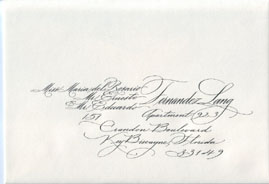 Miss Maria del Rosario
Mr. Ernesto Fernandez Lang
Mr. Eduardo
151 Apartment (923)
Crandon Boulevard
Key Biscayne, Florida
33149